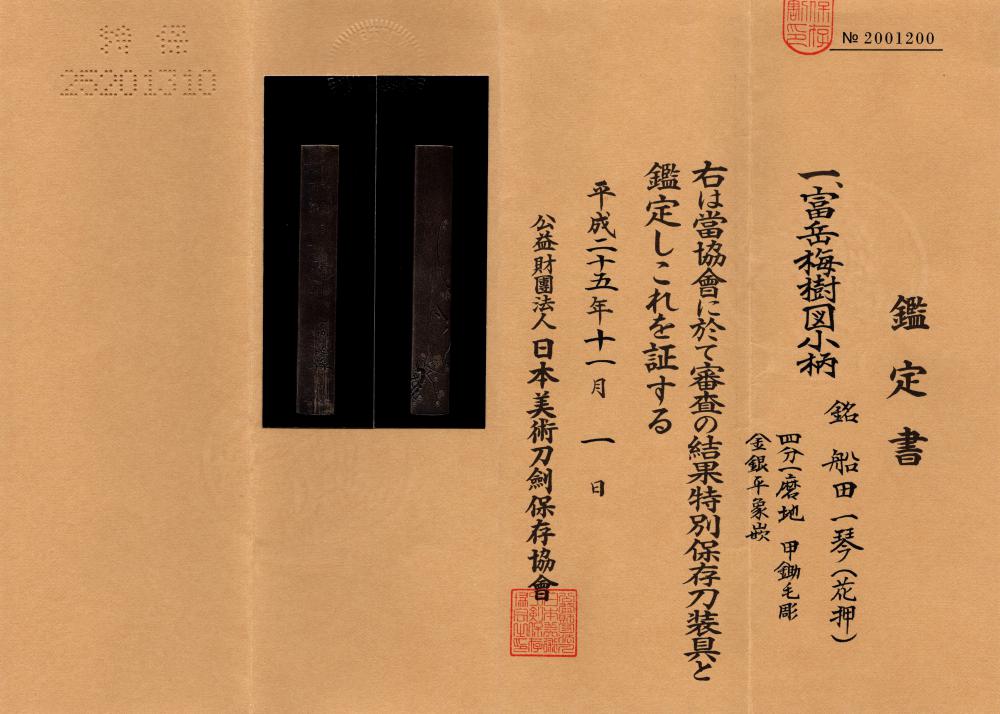 № 2001200
鑑定書
一、富岳梅樹図小柄
銘 船田一琴(花押)
四分一磨地 甲鋤毛彫
金銀平象嵌
右は當協會に於て審査の結果特別保存刀装具と
鑑定しこれを証する
平成二十五年十一月 一 日
公益財團法人 日本美術刀劍保存協會
特 保
25201310